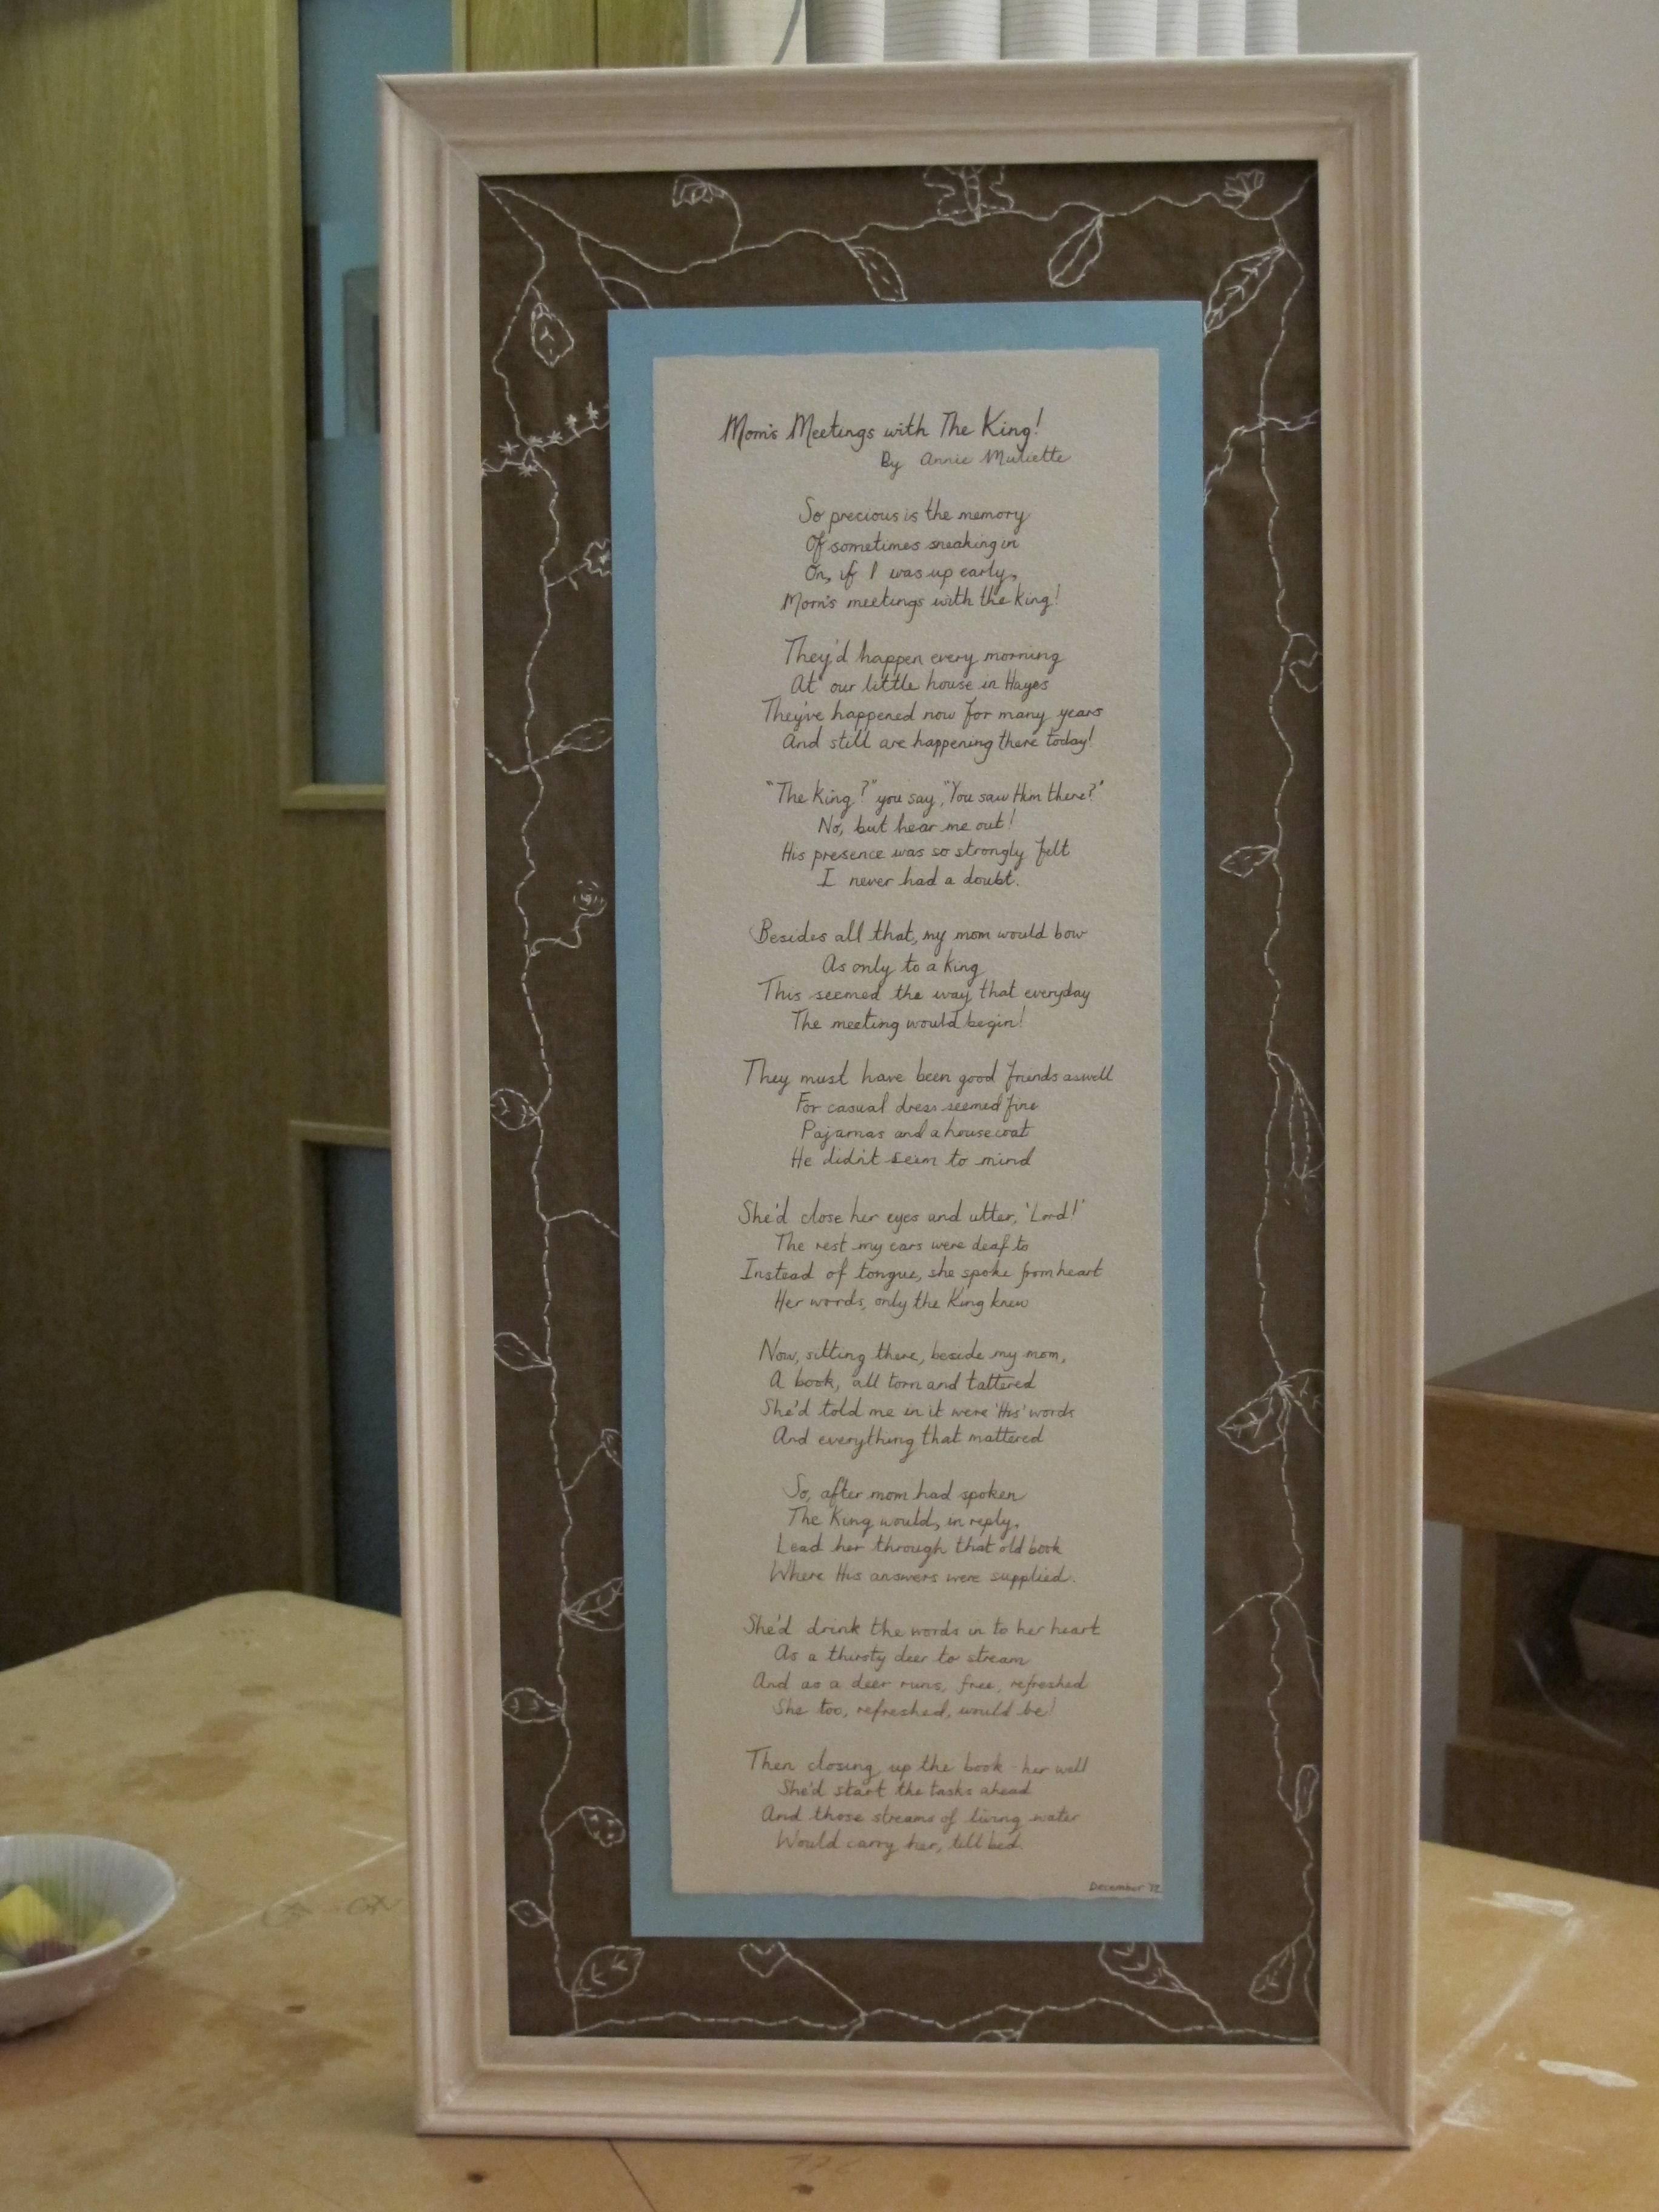 Mom's Meetings with The King!
By Annie Muliette
So precious is the memory
Of sometimes sneaking in
On, if I was up early,
Mom's meetings with the king!
They'd happen every morning
At our little house in Hayes
They've happened now for many years
And still are happening there today!
"The king?" you say, "You saw Him there?"
No, but hear me out!
His presence was so strongly felt
I never had a doubt.
Besides all that, my mom would bow
As only to a king
This seemed the way that everyday
The meeting would begin!
They must have been good friends aswell
For casual dress seemed fine
Pajamas and a housecoat
He didn't seem to mind
She'd close her eyes and utter, 'Lord!'
The rest my ears were deaf to
Instead of tongue, she spoke from heart
Her words, only the King knew
Now, sitting there, beside my mom,
A book, all torn and tattered
She'd told me in it were 'His' words
And everything that mattered
So, after mom had spoken
The King would, in reply,
Lead her through that old book
Where His answers were supplied.
She'd drink the words in to her heart
As a thirsty deer to stream
And as a deer runs, free, refreshed
She too, refreshed, would be!
Then closing up the book - her well
She'd start the tasks ahead
And those streams of living water
Would carry her, till bed.
December '12